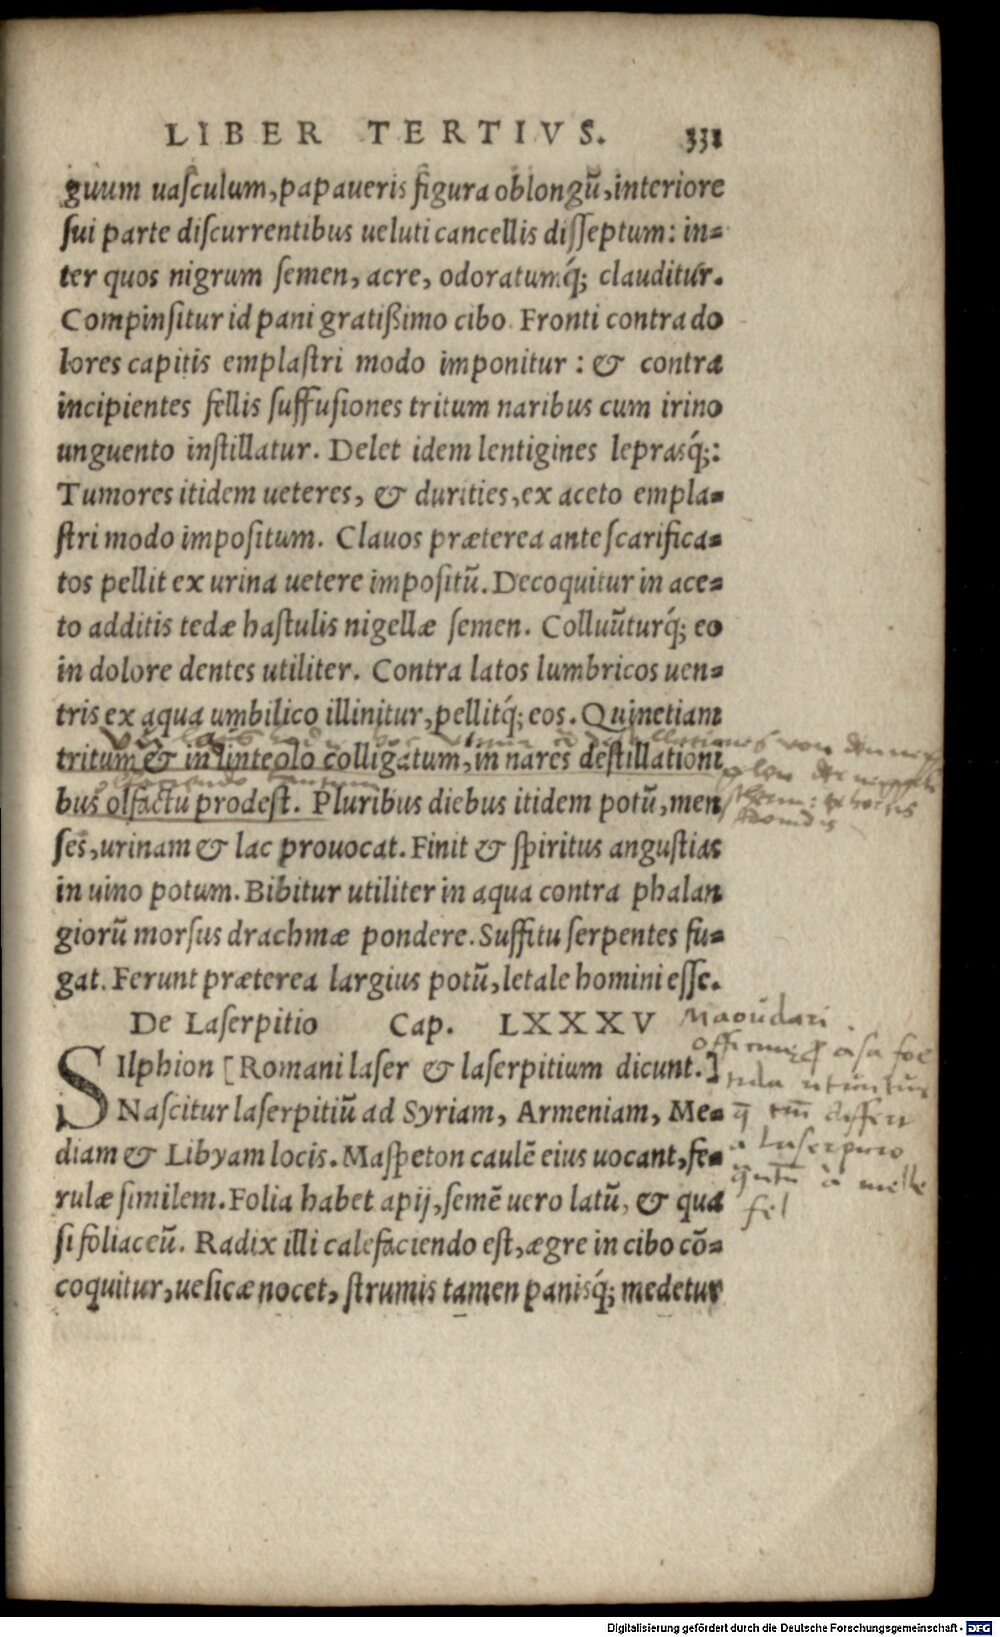 LIBER TERTIVS. 331
guum uaſculum, papaueris figura oblongũ, interiore
ſui parte diſcurrentibus ueluti cancellis diſſeptum: in⸗
ter quos nigrum ſemen, acre, odoratumq́; clauditur.
Compinſitur id pani gratißimo cibo. Fronti contra do
lores capitis emplaſtri modo imponitur: & contra
incipientes fellis ſuffuſiones tritum naribus cum irino
unguento inſtillatur. Delet idem lentigines leprasq́;:
Tumores itidem ueteres, & durities, ex aceto empla⸗
ſtri modo impoſitum. Clauos præterea ante ſcarifica⸗
tos pellit ex urina uetere impoſitũ. Decoquitur in ace⸗
to additis tedæ haſtulis nigellæ ſemen. Colluũturq́; eo
in dolore dentes utiliter. Contra latos lumbricos uen⸗
tris ex aqua umbilico illinitur, pellitq́; eos. Quinetiam
tritum & in linteolo colligatum, in nares deſtillationi
bus olfactu prodeſt. Pluribus diebus itidem potũ, men
ſes, urinam & lac prouocat. Finit & ſpiritus anguſtias
in uino potum. Bibitur utiliter in aqua contra phalan
giorũ morſus drachmæ pondere. Suffitu ſerpentes fu⸗
gat. Ferunt præterea largius potũ, letale homini eſſe.
De Laſerpitio Cap. LXXXV
SIlphion [Romani laſer & laſerpitium dicunt.]
Naſcitur laſerpitiũ ad Syriam, Armeniam, Me⸗
diam & Libyam locis. Maſpeton caulẽ eius uocant, fe⸗
rulæ ſimilem. Folia habet apij, ſemẽ uero latũ, & qua
ſi foliaceũ. Radix illi calefaciendo eſt, ægre in cibo cõ⸗
coquitur, ueſicæ nocet, ſtrumis tamen panisq́; medetur
Maoudari
asa foe
tida utuntur
differt
a laserpitio
a melle
fel
Digitalisierung gefördert durch die Deutsche Forschungsgemeinschaft - DFG